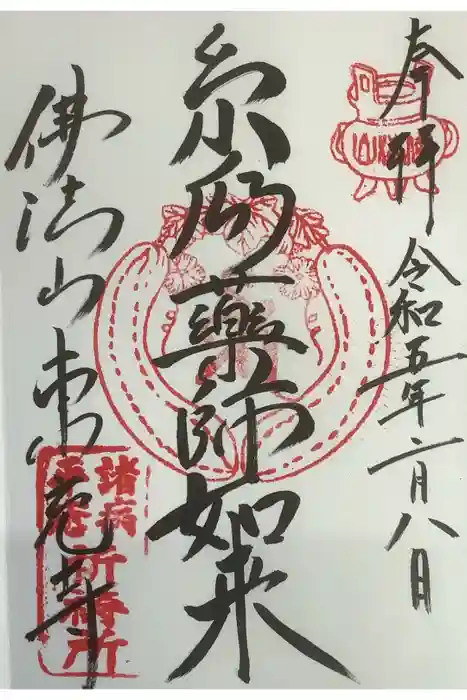 奉拝 令和五年二月八日
藥師如来
佛法山東光寺
諸病
平癒
祈祷所